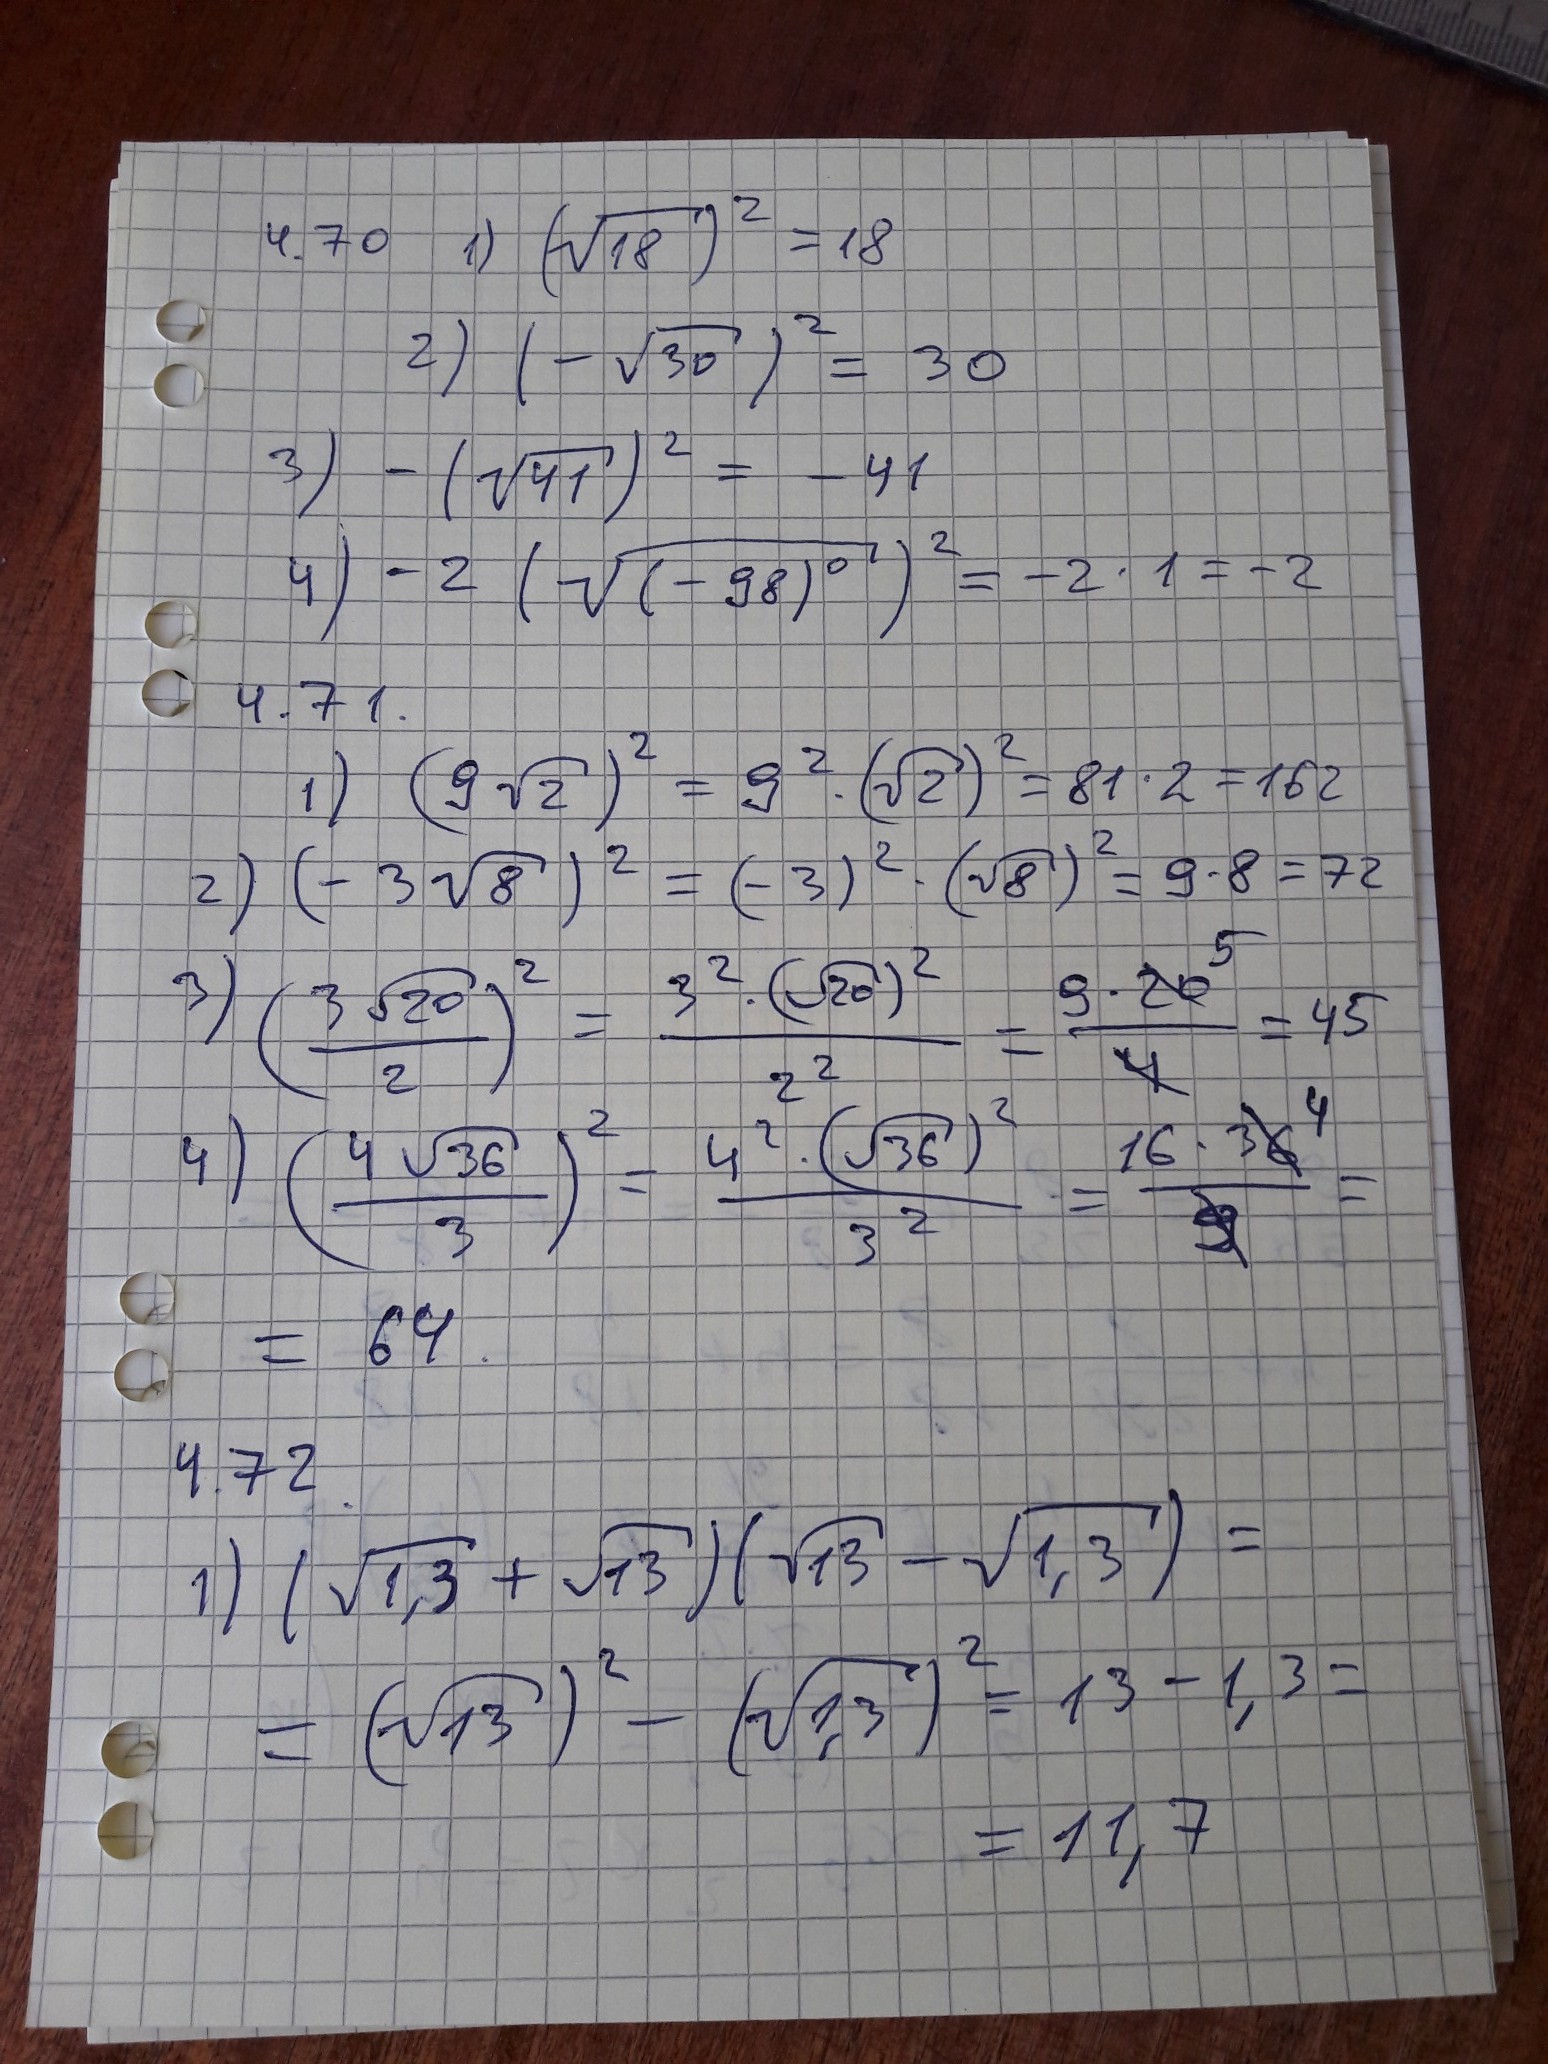 4.70 1) (√18)² = 18
2) (-√30)² = 30
3) -(√41)² = -41
4) -2(√(-98)⁰)² = -2·1 = -2
4.71.
1) (9√2)² = 9²·(√2)² = 81·2 = 162
2) (-3√8)² = (-3)²·(√8)² = 9·8 = 72
3) (3√20/2)² = 3²·(√20)²/2² = 9·20 5/4 = 45
4) (4√36/3)² = 4²·(√36)²/3² = 16·36 4/9 =
= 64.
4.72.
1) (√1,3 + √13)(√13 - √1,3) =
= (√13)² - (√1,3)² = 13 - 1,3 =
= 11,7